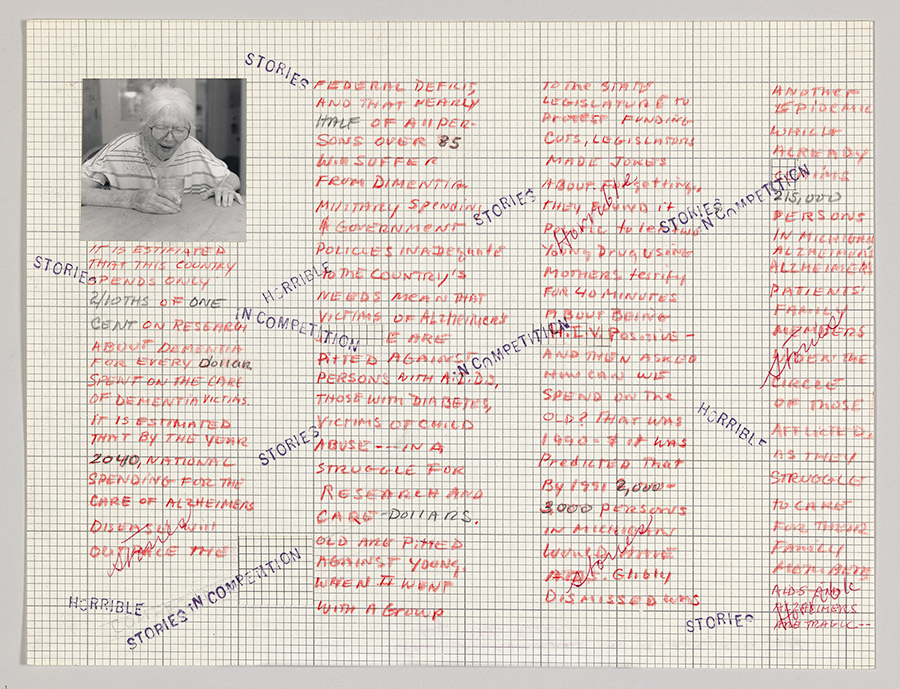 IT IS ESTIMATED
THAT THIS COUNTRY
SPENDS ONLY
2/10THS OF ONE
CENT ON RESEARCH
ABOUT DEMENTIA
FOR EVERY DOLLAR
SPENT ON THE CARE
OF DEMENTIA VICTIMS.
IT IS ESTIMATED
THAT BY THE YEAR
2040, NATIONAL
SPENDING FOR THE
CARE OF ALZHEIMERS
DISEASE WILL
OUTPACE THE
FEDERAL DEFICIT,
AND THAT NEARLY
HALF OF All PER-
SONS OVER 85
WILL SUFFER
FROM DIMENTIA
MILITARY SPENDING
& GOVERNMENT
POLICIES INADEQUATE
TO THE COUNTRY'S
NEEDS MEAN THAT
VICTIMS OF ALZHEIMERS
ARE
PITTED AGAINST
PERSONS WITH A.I.D.S,
THOSE WITH DIABETES,
VICTIMS OF CHILD
ABUSE --- IN A
STRUGGLE FOR
RESEARCH AND
CARE - DOLLARS.
OLD ARE PITTED
AGAINST YOUNG.
WHEN I WENT
WITH A GROUP
TO THE STATE
LEGISLATURE TO
PROTEST FUNDING
CUTS, LEGISLATORS
MADE JOKES
ABOUT Forgetting.
THEY FOUND IT
to
Young Drug USING
MOTHERS testify
FOR 40 MINUTES
ABOUT BEING
H.I.V. Positive -
AND THEN ASKED
HOW CAN WE
SPEND ON THE
OLD? THAT WAS
1990 - & IT WAS
PREDICTED THAT
BY 1991 2,000-
3,000 PERSONS
IN MICHIGAN
WOULD HAVE
AIDS. Glibly
DISMISSED WAS
ANOTHER
EPIDEMIC
WHICH
ALREADY
CLAIMS
215,000
PERSONS
IN MICHIGAN
ALZHEIMER'S
ALZHEIMER'S
PATIENTS'
FAMILY
MEMBERS
WIDEN THE
CIRCLE
OF THOSE
AFFLICTED,
AS THEY
STRUGGLE
TO CARE
FOR THEIR
FAMILY
MEMBERS
AIDS AND
ALZHEIMERS
ARE TRAGIC --
STORIES
STORIES
HORRIBLE
IN COMPETITION
STORIES
Stories
HORRIBLE
STORIES IN COMPETITION
STORIES
Horrible
STORIES
IN COMPETITION
IN COMPETITION
Stories
HORRIBLE
Stories
STORIES
Horrible